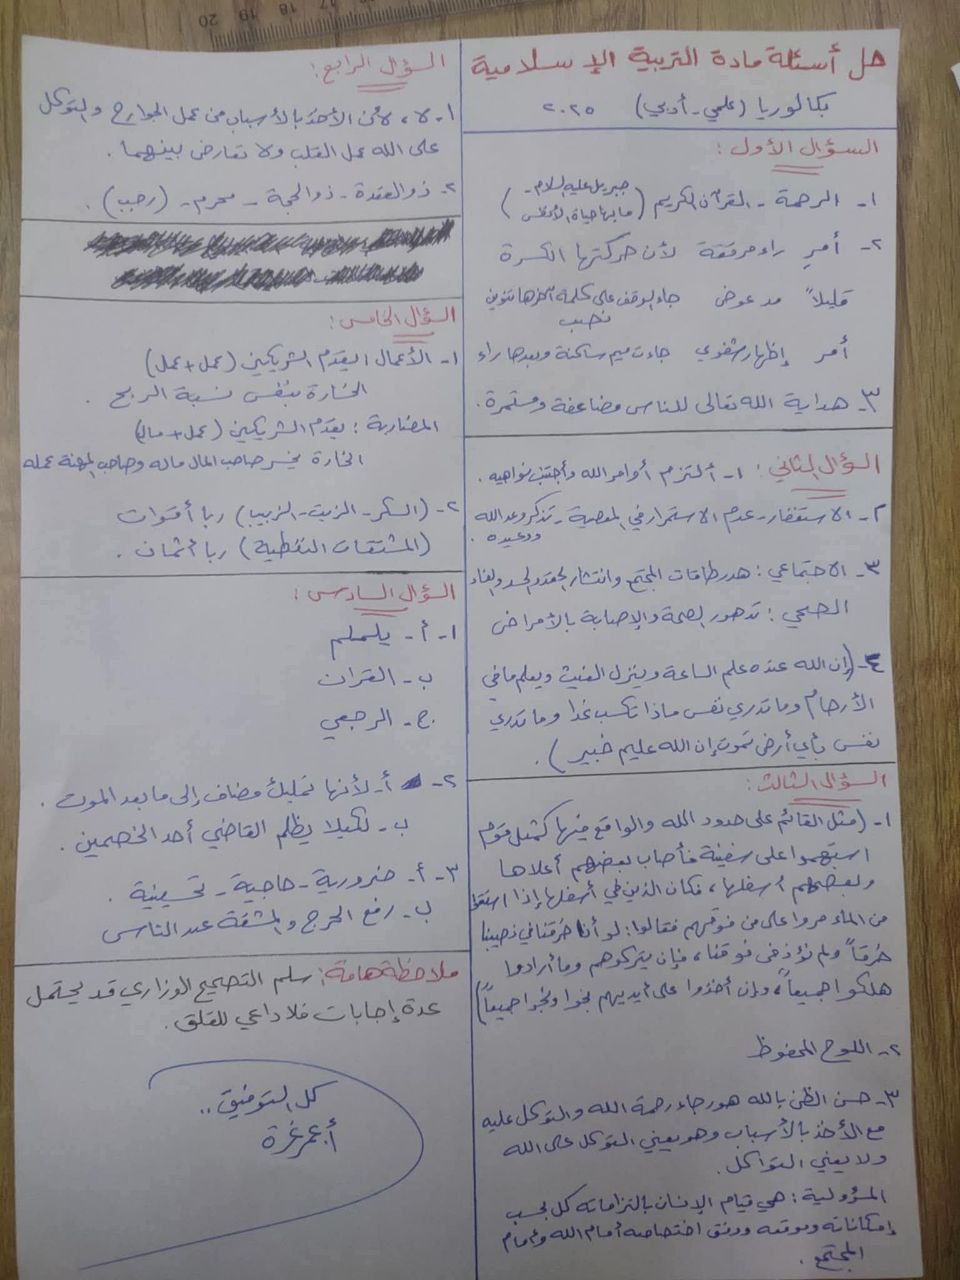 حل أسئلة مادة التربية الإسلامية
بكالوريا (علمي - أدبي) ٢٠٢٥
السؤال الأول :
١- الرحمة - القرآن الكريم (جبريل عليه السلام - ما بها حياة الأنفس)
٢- أمرِ راء مرققة لأن حركتها الكسرة
قليلاً مد عوض جاء الوقف على كلمة آخرها تنوين نصب
أمر إظهار شفوي جاءت ميم ساكنة وبعدها راء
٣- هداية الله تعالى للناس مضاعفة ومستمرة.
السؤال الثاني : ١- ألتزم أوامر الله وأجتنب نواهيه.
٢- الاستغفار - عدم الاستمرار في المعصية - تذكر وعد الله ووعيده.
٣- الاجتماعي : هدر طاقات المجتمع وانتشار الحقد والحسد والفساد
الصحي : تدهور الصحة والإصابة بالأمراض
٤- (إن الله عنده علم الساعة وينزل الغيث ويعلم ما في
الأرحام وما تدري نفس ماذا تكسب غدا وما تدري
نفس بأي أرض تموت إن الله عليم خبير).
السؤال الثالث :
١- (مثل القائم على حدود الله والواقع فيها كمثل قوم
استهموا على سفينة فأصاب بعضهم أعلاها
وبعضهم أسفلها، فكان الذين في أسفلها إذا استقوا
من الماء مروا على من فوقهم فقالوا: لو أنا خرقنا في نصيبنا
خرقاً ولم نؤذ من فوقنا، فإن يتركوهم وما أرادوا
هلكوا جميعاً، وإن أخذوا على أيديهم نجوا ونجوا جميعاً)
٢- اللوح المحفوظ
٣- حسن الظن بالله هو رجاء رحمة الله والتوكل عليه
مع الأخذ بالأسباب وهو يعني التوكل على الله
ولا يعني التواكل.
المسؤولية : هي قيام الإنسان بالتزاماته كل بحسب
إمكاناته وموقعه ووفق اختصاصه أمام الله وأمام
المجتمع.
السؤال الرابع :
١- لا، لأن الأخذ بالأسباب من عمل الجوارح والتوكل
على الله عمل القلب ولا تعارض بينهما.
٢- ذو القعدة - ذو الحجة - محرم - (رجب).
السؤال الخامس :
١- الأعمال : يقدم الشريكين (عمل + عمل)
الخسارة بنفس نسبة الربح.
المضاربة : يقدم الشريكين (عمل + مال)
الخسارة يخسر صاحب المال ماله وصاحب المهنة عمله
٢- (السكر - الزيت - الزبيب) ربا أقوات
(المشتقات النفطية) ربا أثمان.
السؤال السادس :
١- أ- يلملم
ب- القران
ج- الرجعي
٢- أ- لأنها تمليك مضاف إلى ما بعد الموت.
ب- لكيلا يظلم القاضي أحد الخصمين.
٣- أ- ضرورية - حاجية - تحسينية.
ب- رفع الحرج والمشقة عند الناس
ملاحظة هامة: سلم التصحيح الوزاري قد يحتمل
عدة إجابات فلا داعي للقلق.
كل التوفيق ..
أ. عمر غرة
20 19 18 17